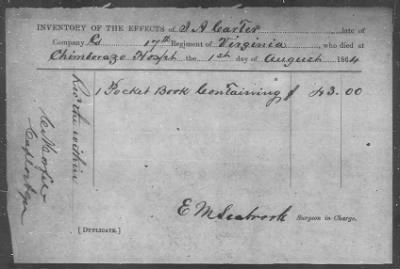 INVENTORY OF THE EFFECTS of J A Carter late of
Company G 17th Regiment of Virginia who died at
Chimborazo Hospt the 1st day of August 1864
1 Pocket Book Containing $ 43.00
E M Seabrook Surgeon in Charge.
[DUPLICATE.]
Rec the within